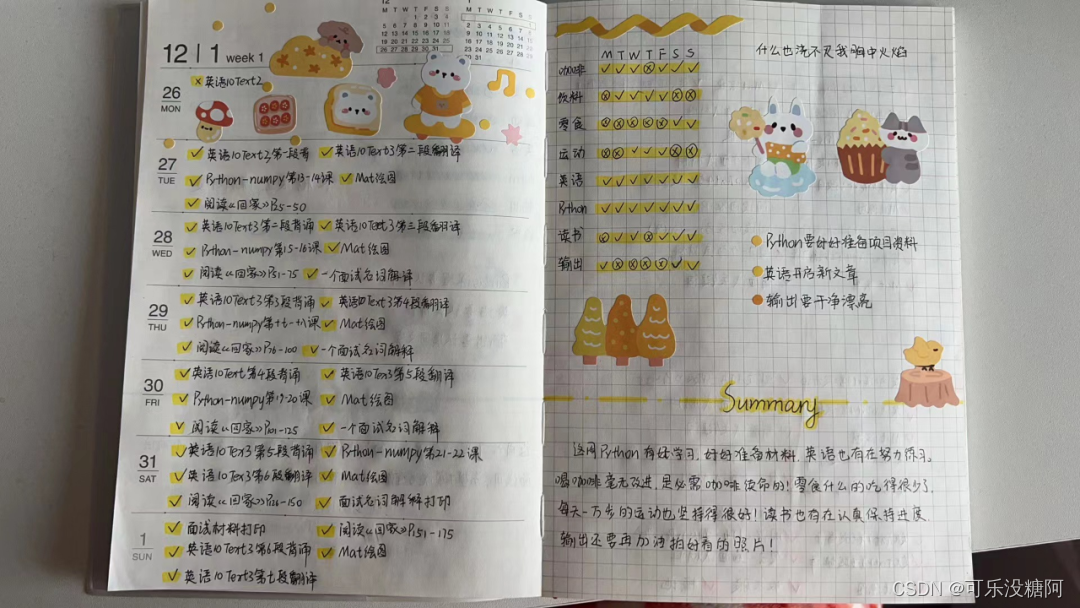 12 | 1 week 1
26 MON
× 英语10Text2
27 TUE
✓ 英语10Text2第一段背 ✓ 英语10Text3第二段翻译
✓ Python-numpy第13-14课 ✓ Mat绘图
✓ 阅读《回家》P25-50
28 WED
✓ 英语10Text3第二段背诵 ✓ 英语10Text3第三段翻译
✓ Python-numpy第15-16课 ✓ Mat绘图
✓ 阅读《回家》P51-75 ✓ 一个面试名词解释
29 THU
✓ 英语10Text3第3段背诵 ✓ 英语10Text3第4段翻译
✓ Python-numpy第十七-十八课 ✓ Mat绘图
✓ 阅读《回家》P76-100 ✓ 一个面试名词解释
30 FRI
✓ 英语10Text第4段背诵 ✓ 英语10Tex3第5段翻译
✓ Python-numpy第19-20课 ✓ Mat绘图
✓ 阅读《回家》P101-125 ✓ 一个面试名词解释
31 SAT
✓ 英语10Tex3第5段背诵 ✓ Python-numpy第21-22课
✓ 英语10Tex3第6段翻译 ✓ Mat绘图
✓ 阅读《回家》P126-150 ✓ 面试名词解释打印
1 SUN
✓ 面试材料打印 ✓ 阅读《回家》P151-175
✓ 英语10Text3第6段背诵 ✓ Mat绘图
✓ 英语10Text3第七段翻译
M T W T F S S
咖啡 ✓ ✓ ✓ ⊗ ✓ ✓ ✓
饮料 ⊗ ✓ ✓ ✓ ✓ ⊗ ⊗
零食 ⊗ ⊗ ⊗ ⊗ ⊗ ✓ ✓
运动 ⊗ ⊗ ✓ ✓ ✓ ⊗ ⊗
英语 ✓ ✓ ✓ ✓ ✓ ✓ ✓
Python ✓ ✓ ✓ ✓ ✓ ✓ ✓
读书 ⊗ ✓ ✓ ⊗ ✓ ✓ ✓
输出 ✓ ⊗ ⊗ ⊗ ⊗ ✓ ✓
什么也浇不灭我胸中火焰
Python要好好准备项目资料
英语开启新文章
输出要干净漂亮
Summary
这周Python有好好学习,好好准备材料,英语也有在努力练习。
喝咖啡毫无改进,是必需咖啡续命的!零食什么的吃得很少了,
每天一万步的运动也坚持得很好!读书也有在认真保持进度,
输出还要再加油拍好看的照片!
CSDN @可乐没糖阿